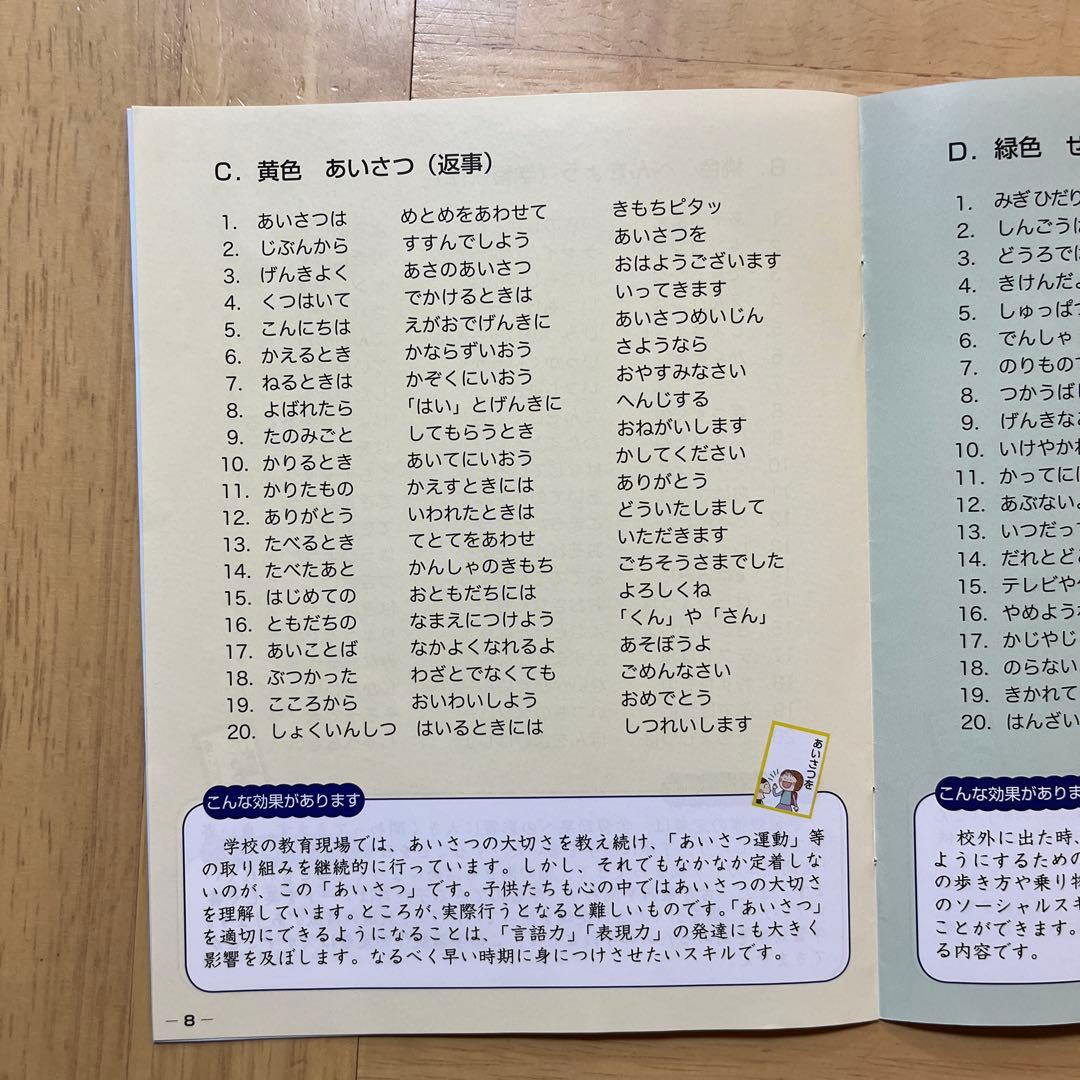 C. 黄色　あいさつ（返事）
1. あいさつは　めとめをあわせて　きもちピタッ
2. じぶんから　すすんでしよう　あいさつを
3. げんきよく　あさのあいさつ　おはようございます
4. くつはいて　でかけるときは　いってきます
5. こんにちは　えがおでげんきに　あいさつめいじん
6. かえるとき　かならずいおう　さようなら
7. ねるときは　かぞくにいおう　おやすみなさい
8. よばれたら　「はい」とげんきに　へんじする
9. たのみごと　してもらうとき　おねがいします
10. かりるとき　あいてにいおう　かしてください
11. かりたもの　かえすときには　ありがとう
12. ありがとう　いわれたときは　どういたしまして
13. たべるとき　てとてをあわせ　いただきます
14. たべたあと　かんしゃのきもち　ごちそうさまでした
15. はじめての　おともだちには　よろしくね
16. ともだちの　なまえにつけよう　「くん」や「さん」
17. あいことば　なかよくなれるよ　あそぼうよ
18. ぶつかった　わざとでなくても　ごめんなさい
19. こころから　おいわいしよう　おめでとう
20. しょくいんしつ　はいるときには　しつれいします
あいさつを
こんな効果があります
学校の教育現場では、あいさつの大切さを教え続け、「あいさつ運動」等
の取り組みを継続的に行っています。しかし、それでもなかなか定着しな
いのが、この「あいさつ」です。子供たちも心の中ではあいさつの大切さ
を理解しています。ところが、実際行うとなると難しいものです。「あいさつ」
を適切にできるようになることは、「言語力」「表現力」の発達にも大きく
影響を及ぼします。なるべく早い時期に身につけさせたいスキルです。
― 8 ―
D. 緑色　せ
1. みぎ ひだり
2. しんごうは
3. どうろでは
4. きけんだよ
5. しゅっぱつ
6. でんしゃ
7. のりもので
8. つかうばし
9. げんきなこ
10. いけやかわ
11. かってには
12. あぶないよ
13. いつだって
14. だれとどこ
15. テレビやゲ
16. やめようね
17. かじやじし
18. のらない
19. きかれて
20. はんざい
こんな効果がありま
校外に出た時、
ようにするための
の歩き方や乗り物
のソーシャルスキ
ことができます。
る内容です。